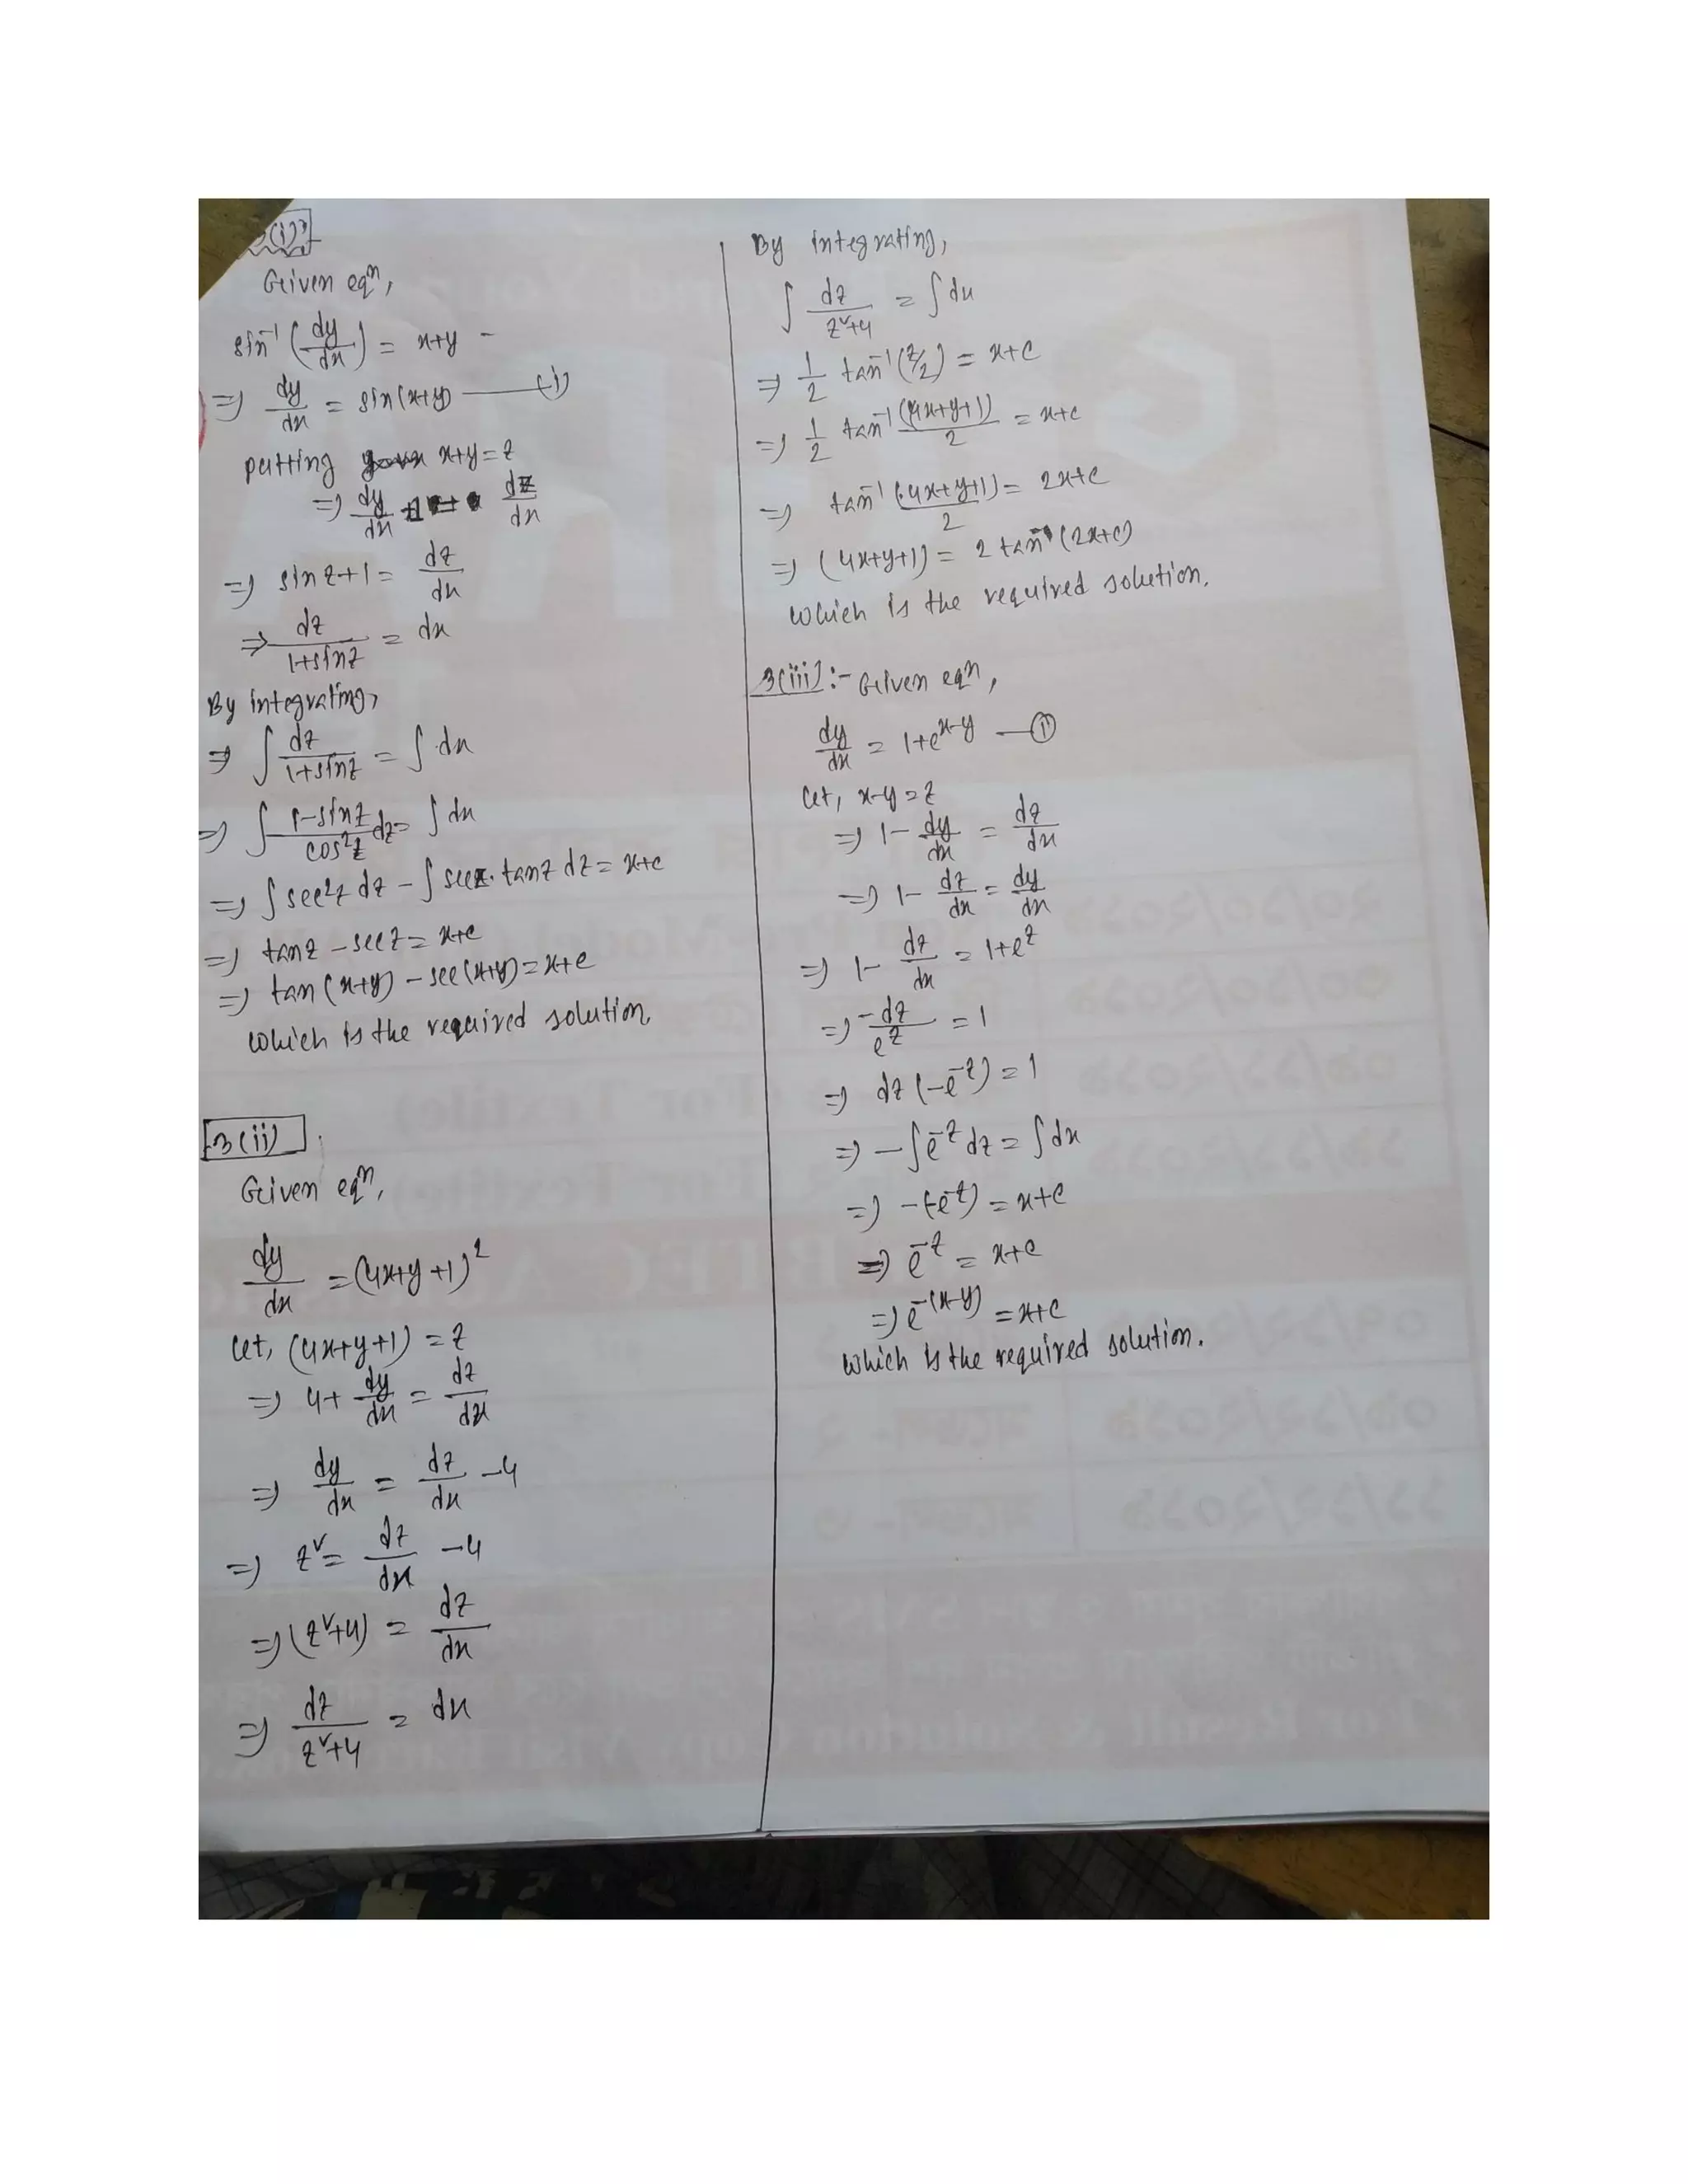 (i)
Given eqn,
sin⁻¹(dy/dx) = x+y -
⇒ dy/dx = sin(x+y) —— (i)
putting x+y=z
⇒ dy/dx + 1 = dz/dx
⇒ sinz+1 = dz/dx
⇒ dz/1+sinz = dx
By integrating,
⇒ ∫ dz/1+sinz = ∫ dx
⇒ ∫ 1-sinz/cos²z dz = ∫ dx
⇒ ∫ sec²z dz - ∫ secz. tanz dz = x+c
⇒ tanz - secz = x+c
⇒ tan(x+y) - sec(x+y) = x+c
which is the required solution
3(ii)
Given eqn,
dy/dx = (4x+y+1)²
Let, (4x+y+1) = z
⇒ 4+ dy/dx = dz/dx
⇒ dy/dx = dz/dx -4
⇒ z² = dz/dx -4
⇒ (z²+4) = dz/dx
⇒ dz/z²+4 = dx
By integrating,
∫ dz/z²+4 = ∫ dx
⇒ 1/2 tan⁻¹(z/2) = x+c
⇒ 1/2 tan⁻¹ (4x+y+1)/2 = x+c
⇒ tan⁻¹ (4x+y+1)/2 = 2x+c
⇒ (4x+y+1) = 2 tan (2x+c)
which is the required solution.
3(iii):- Given eqn,
dy/dx = 1+e^(x-y) — (i)
Let, x-y=z
⇒ 1- dy/dx = dz/dx
⇒ 1- dz/dx = dy/dx
⇒ 1- dz/dx = 1+e^z
⇒ -dz/e^z = 1
⇒ dz (-e^-z) = 1
⇒ -∫e^-z dz = ∫dx
⇒ -(-e^-z) = x+c
⇒ e^-z = x+c
⇒ e^-(x-y) = x+c
which is the required solution.